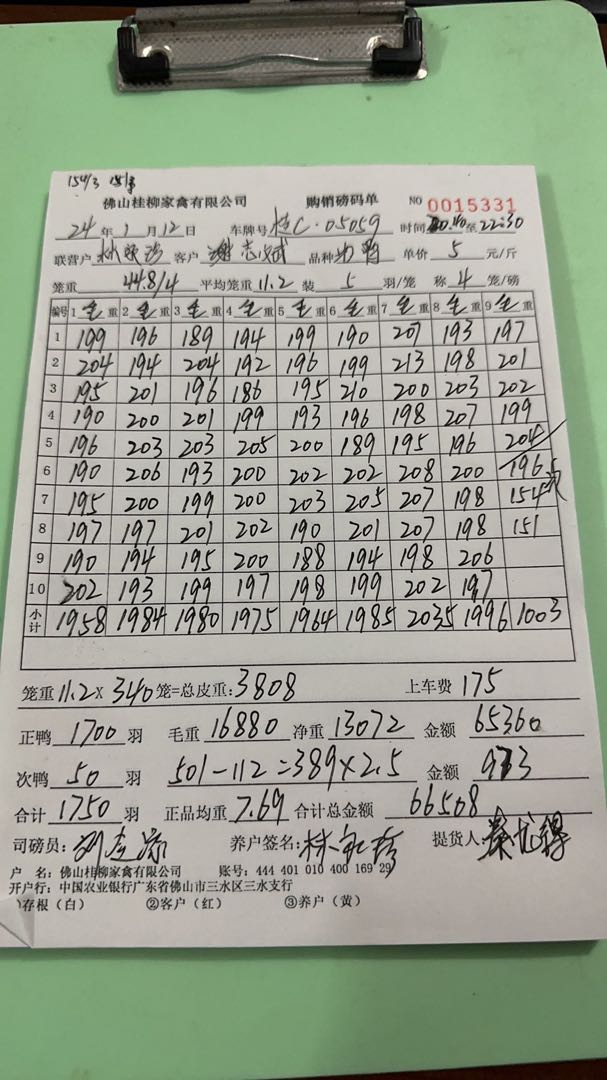 154/3 151/3
佛山桂柳家禽有限公司 购销磅码单 NO 0015331
24年1月12日 车牌号 桂C·05059 时间 20:40至22:30
联营户 林 客户 谢志斌 品种 单价 5 元/斤
笼重 44.8/4 平均笼重 11.2 装 5 羽/笼 称 4 笼/磅
编号 1毛重 2毛重 3毛重 4毛重 5毛重 6毛重 7毛重 8毛重 9毛重
1 199 196 189 194 199 190 207 193 197
2 204 194 204 192 196 199 213 198 201
3 195 201 196 186 195 210 200 203 202
4 190 200 201 199 193 196 198 207 199
5 196 203 203 205 200 189 195 196 204
6 190 206 193 200 202 202 208 200 196
7 195 200 199 200 203 205 207 198 154 次
8 197 197 201 202 190 201 207 198 151
9 190 194 195 200 188 194 198 206
10 202 193 199 197 198 199 202 197
小计 1958 1984 1980 1975 1964 1985 2035 1996 1003
笼重 11.2 × 340 笼=总皮重: 3808 上车费 175
正鸭 1700 羽 毛重 16880 净重 13072 金额 65360
次鸭 50 羽 501-112=389×2.5 金额 973
合计 1750 羽 正品均重 7.69 合计总金额 66508
司磅员: 养户签名: 林 提货人
户 名: 佛山桂柳家禽有限公司 账号: 444 401 010 400 169 29
开户行: 中国农业银行广东省佛山市三水区三水支行
存根(白) ②客户(红) ③养户(黄)